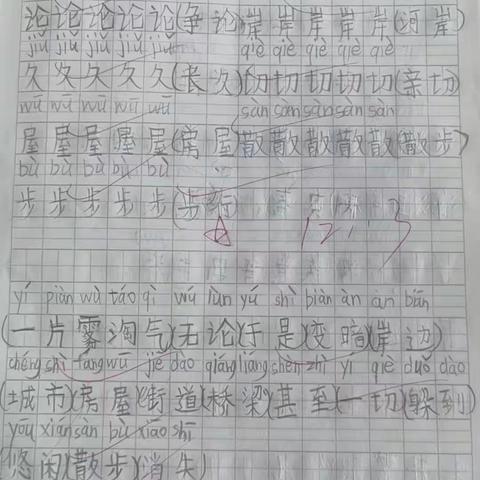 论论论论论(争论)岸岸岸岸岸(河岸)
jiǔ jiǔ jiǔ jiǔ jiǔ qiè qiè qiè qiè
久久久久久(长久)切切切切切(亲切)
wū wū wū wū wū sàn sàn sàn sàn sàn
屋屋屋屋屋(房屋)散散散散散(散步)
bù bù bù bù bù
步步步步步(步行)
12.3
yí piàn wù táo qì wú lùn yú shì biàn àn àn biān
(一片雾淘气)(无论)(于是)(变暗)(岸边)
chéng shì fáng wū jiē dào qiáng liang shèn zhì yí qiè duǒ dào
(城市)(房屋)(街道)(桥梁)(甚至)(一切)(躲到)
yōu xián sàn bù xiāo shī
(悠闲)(散步)(消失)